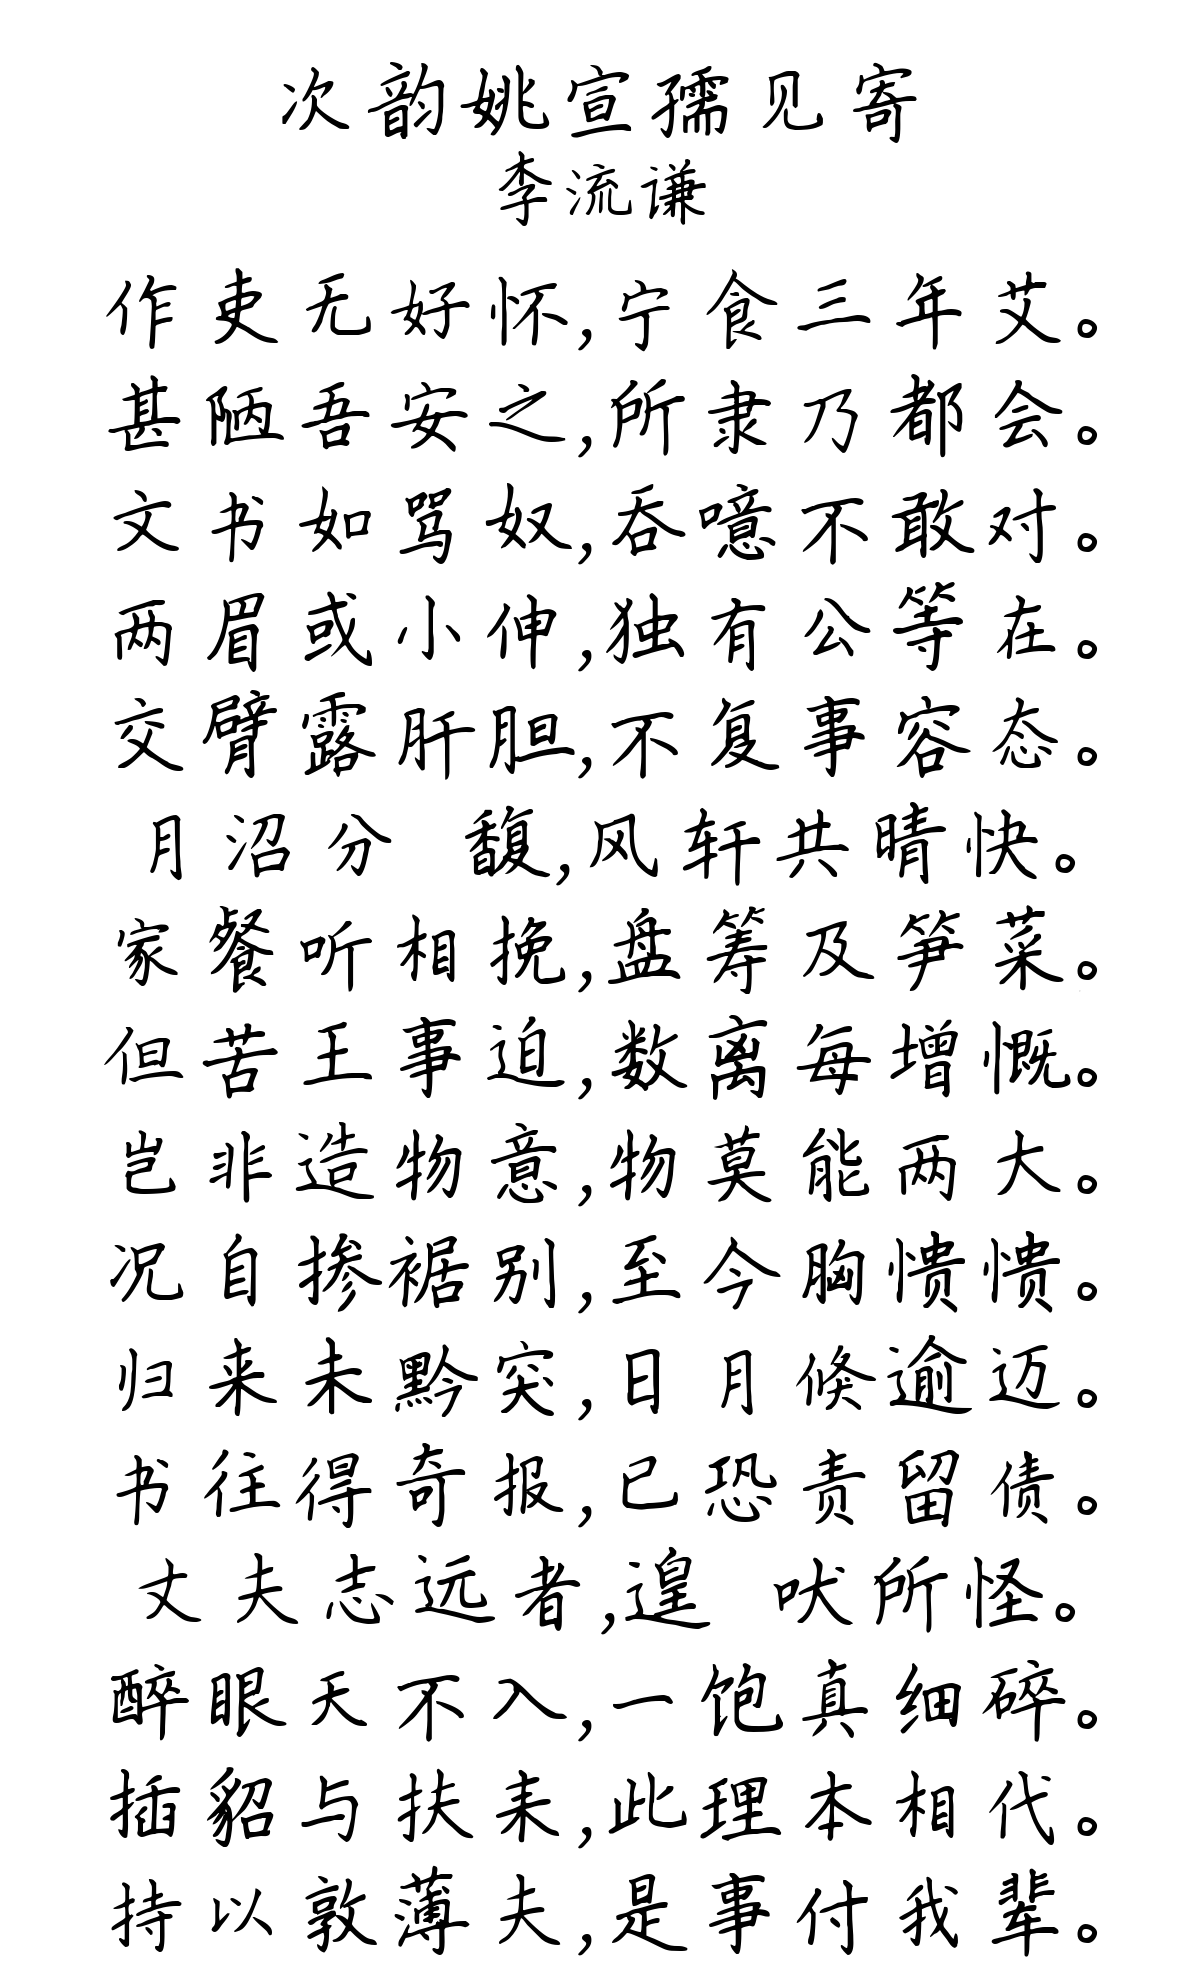 次韵姚宣孺见寄
李流谦
作吏无好怀,宁食三年艾。
甚陋吾安之,所隶乃都会。
文书如骂奴,吞噫不敢对。
两眉或小伸,独有公等在。
交臂露肝胆,不复事容态。
月沼分 馥,风轩共晴快。
家餐听相挽,盘筹及笋菜。
但苦王事迫,数离每增慨。
岂非造物意,物莫能两大。
况自掺裾别,至今胸愦愦。
归来未黔突,日月倏逾迈。
书往得奇报,已恐责留债。
丈夫志远者,遑 吠所怪。
醉眼天不入,一饱真细碎。
插貂与扶耒,此理本相代。
持以敦薄夫,是事付我辈。